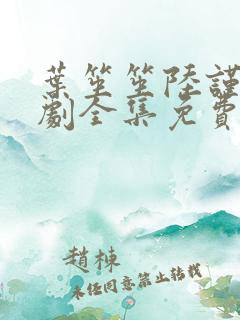 葉笙笙陸謹
劇全集免費
趙棟
未經同意禁止轉載